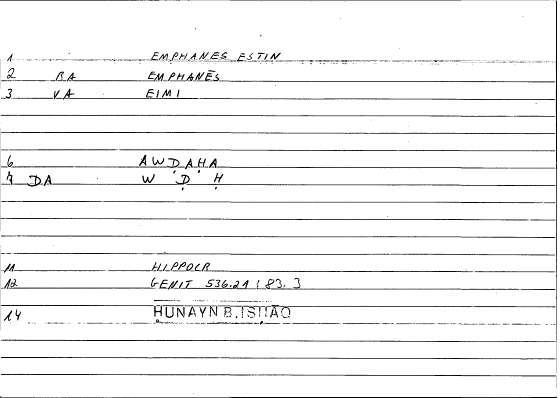 1 EMPHANES ESTIN
2 RA EMPHANĒS
3 VA EIMI
6 AWḌAḤA
7 DA W Ḍ Ḥ
11 HIPPOCR
12 GENIT 536.21 : 83.3
14 ḤUNAYN B. ISḤĀQ